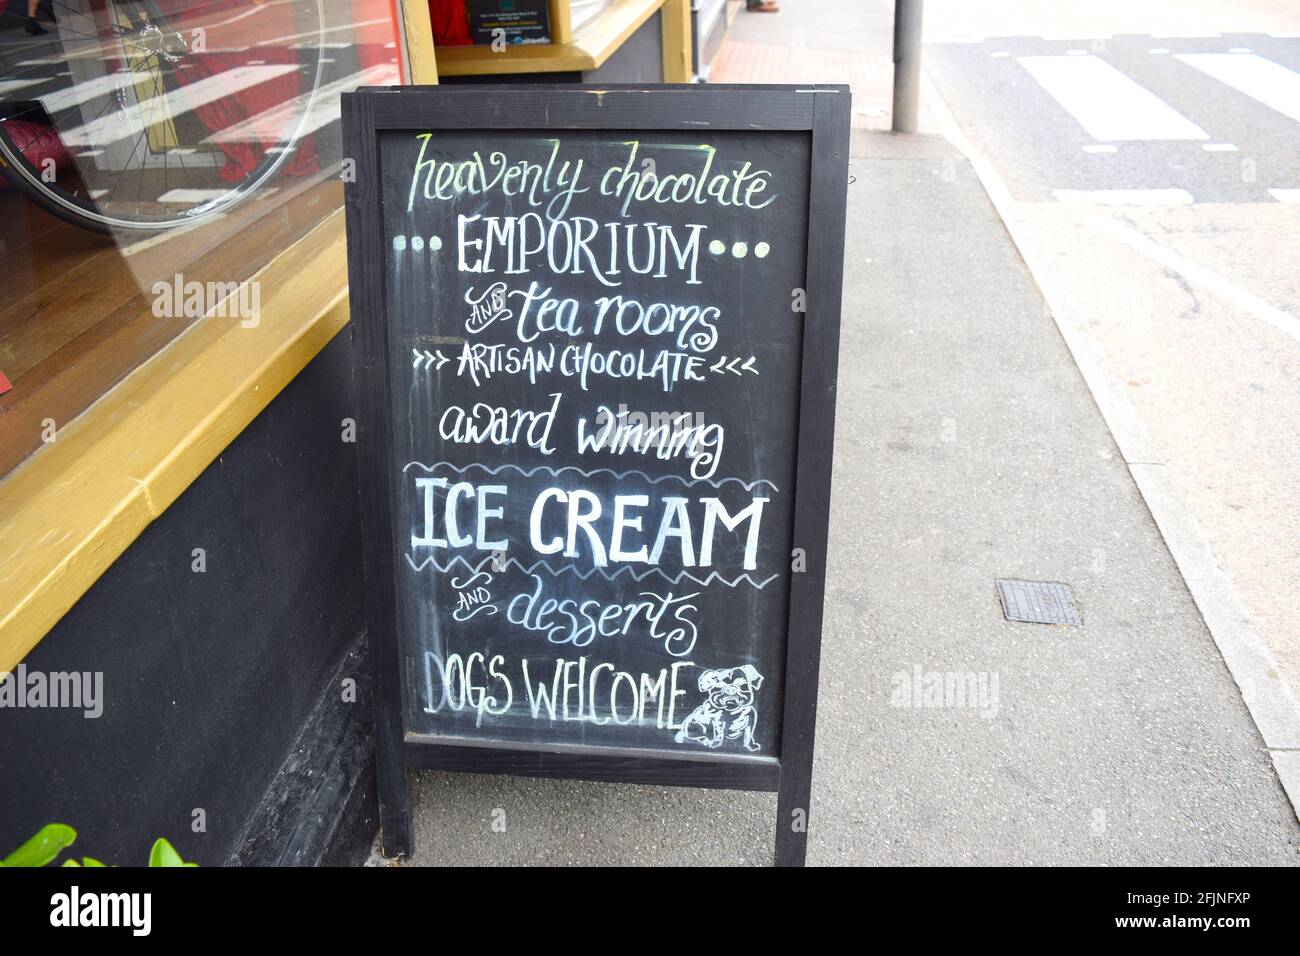 heavenly chocolate
EMPORIUM
AND tea rooms
>>> ARTISAN CHOCOLATE <<<
award winning
ICE CREAM
AND desserts
DOGS WELCOME
alamy
Image ID: 2FJNFXP
www.alamy.com